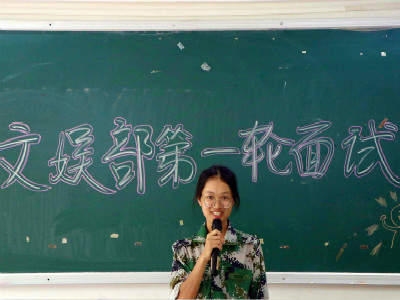 文娱部第一轮面试